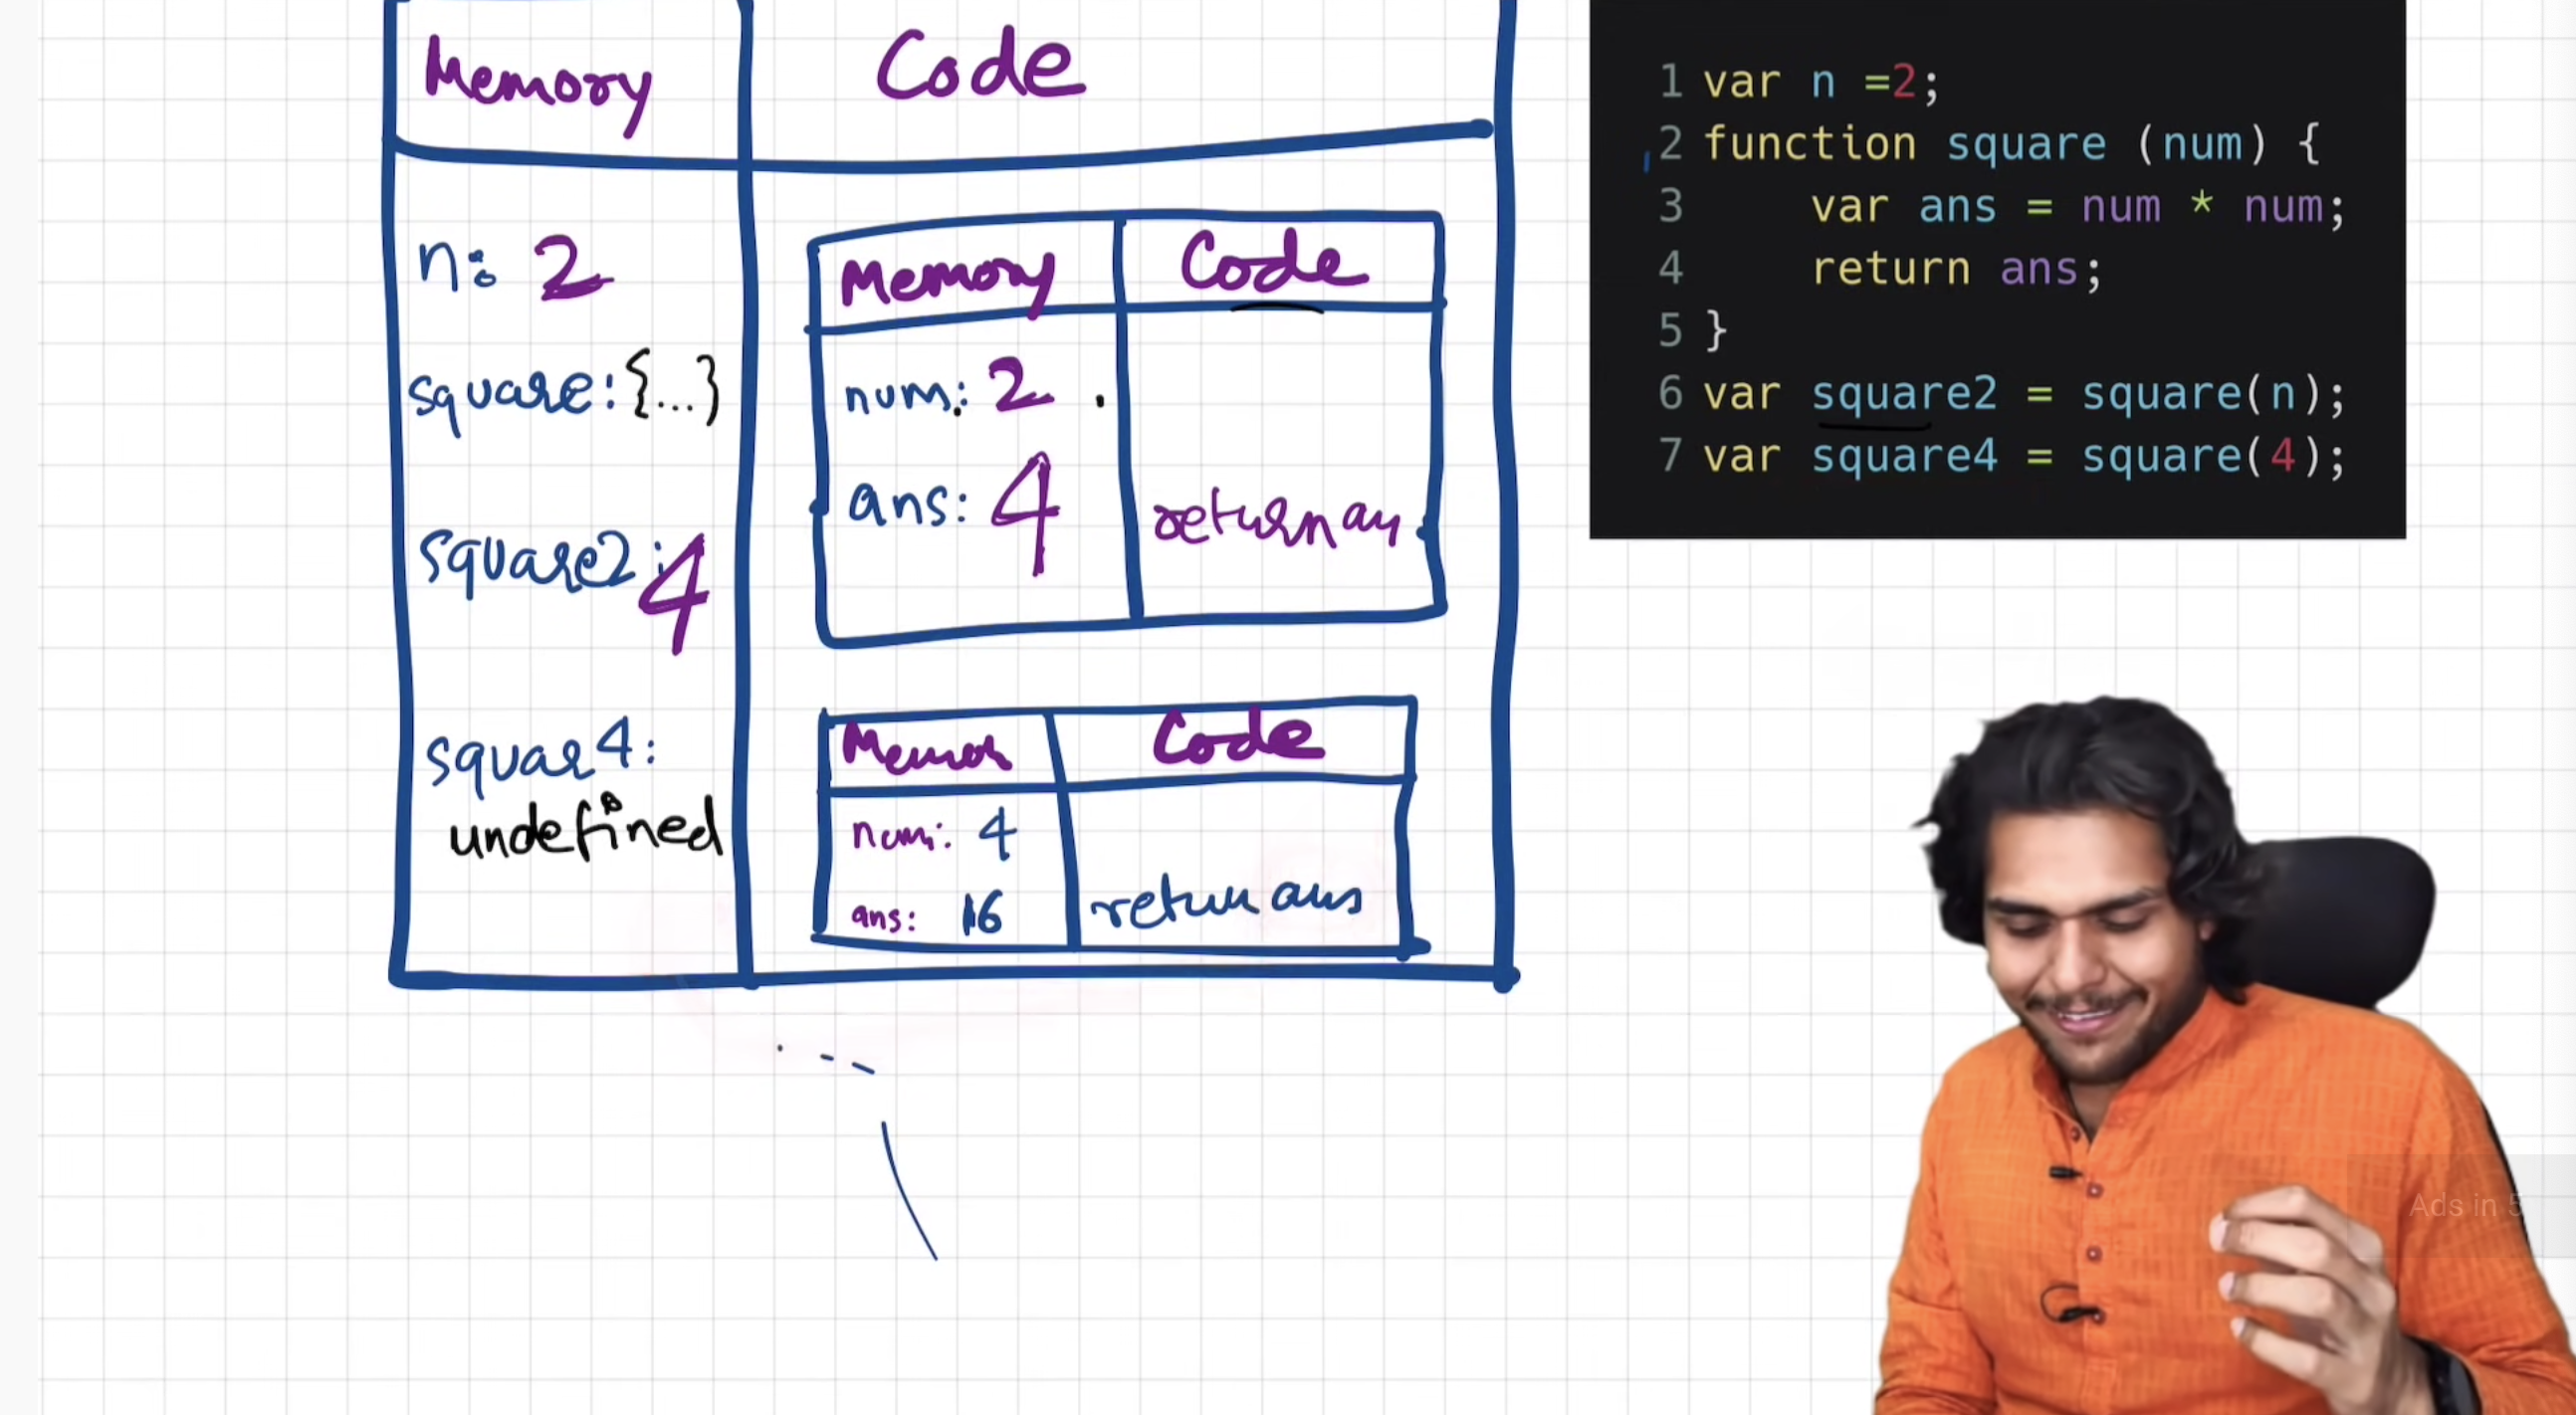 Memory
Code
n: 2
square: {...}
square2: 4
squar4:
undefined
Memory
Code
num: 2
ans: 4
return an
Memor
Code
num: 4
ans: 16
return ans
1 var n =2;
2 function square (num) {
3 var ans = num * num;
4 return ans;
5 }
6 var square2 = square(n);
7 var square4 = square(4);
Ads in 5